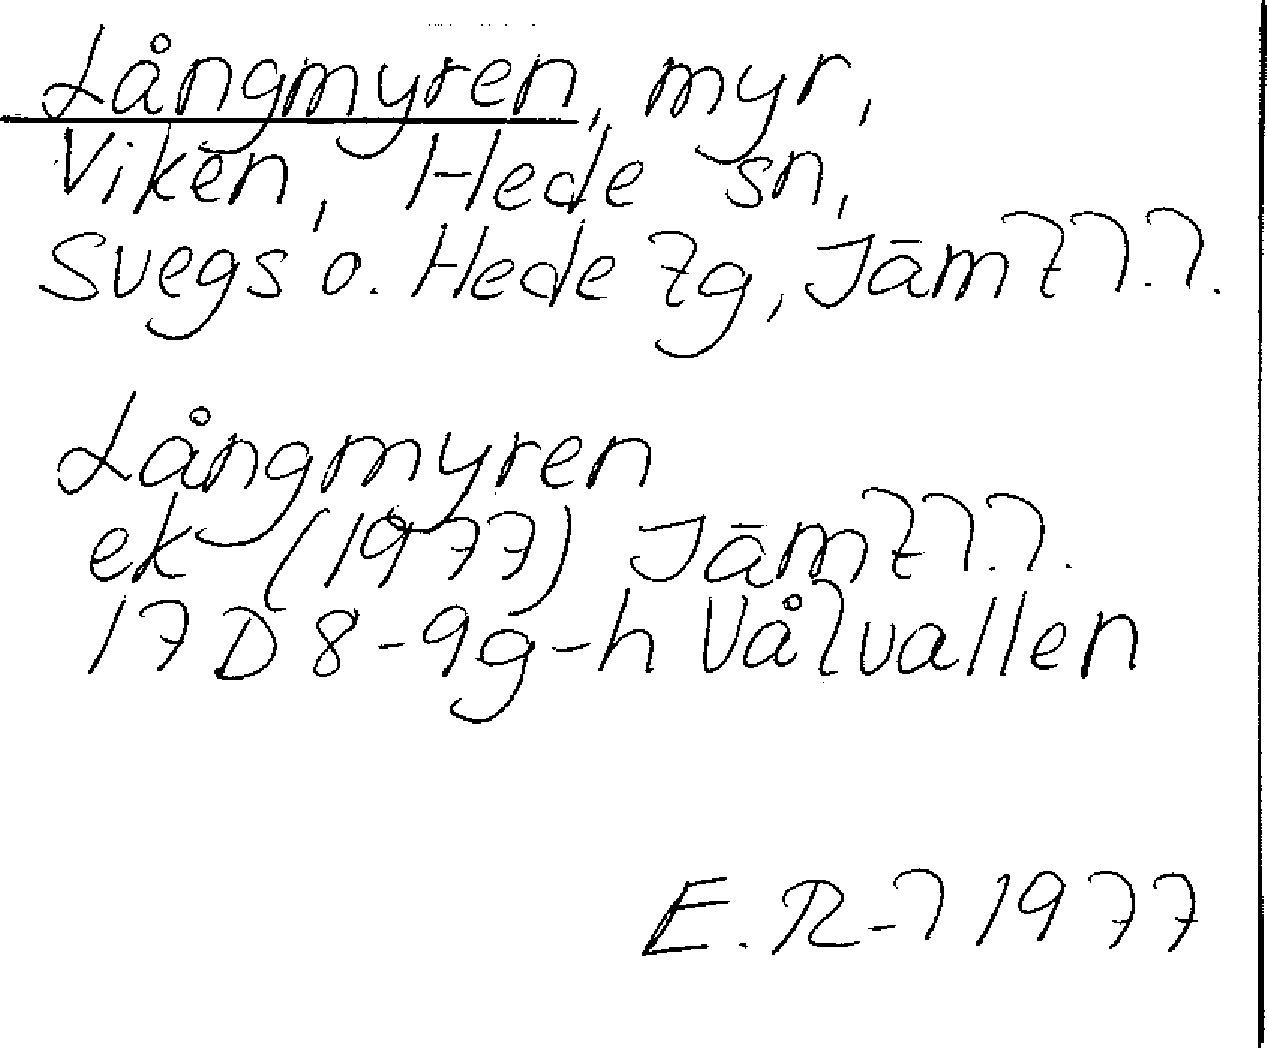 Långmyren, myr,
Viken, Hede sn,
Svegs o. Hede tg, Jämtl.l.
Långmyren
ek (1977) Jämtl.l.
17D8-9g-h Vålvallen
E.R-l 1977